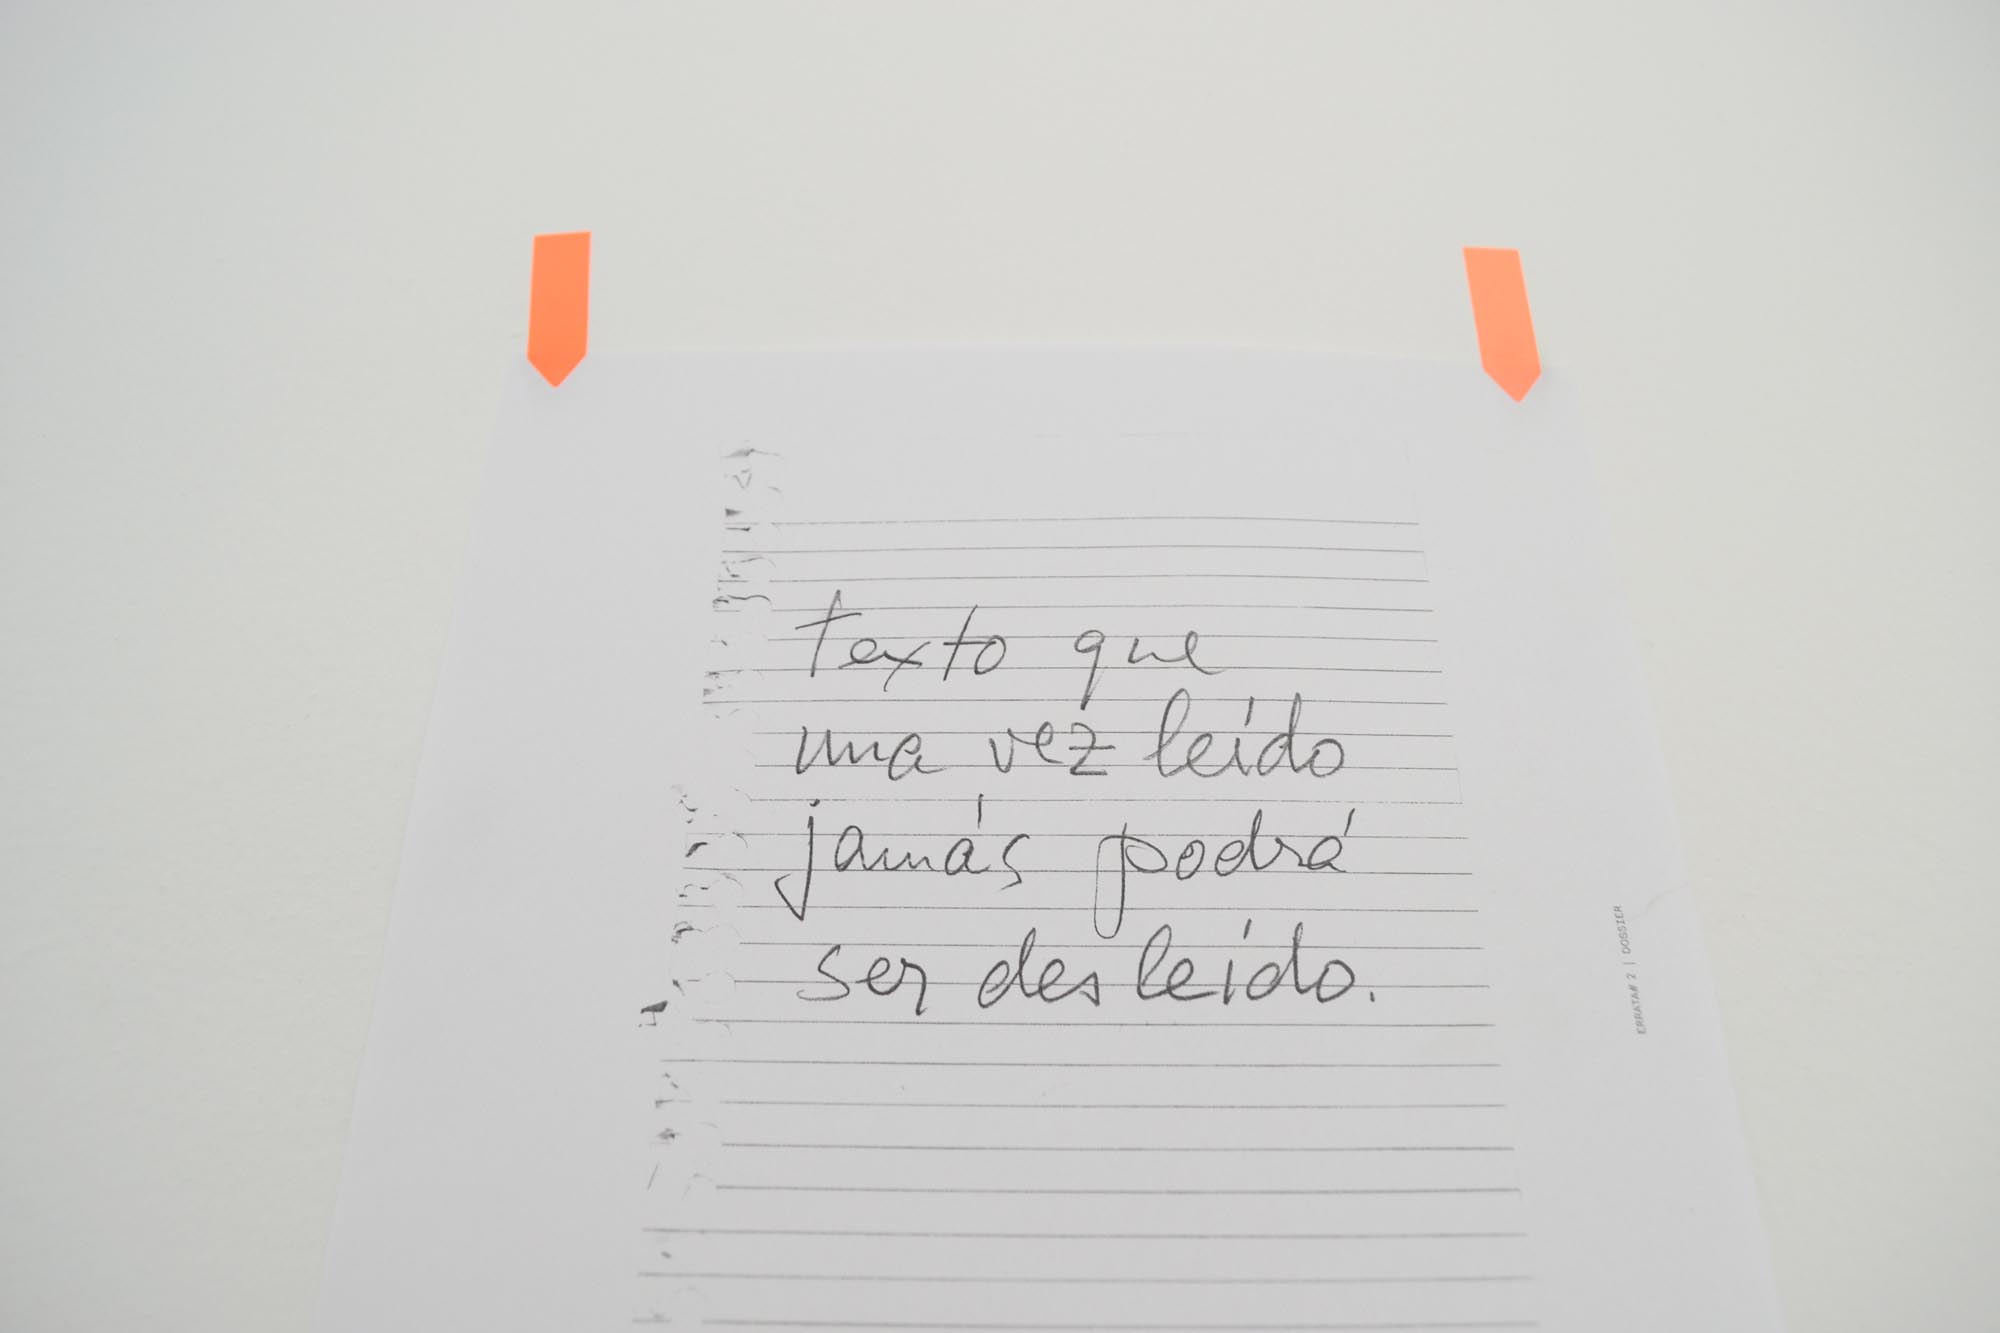 Texto que
una vez leído
jamás podrá
ser desleído.
ERRATA# 2 | DOSSIER